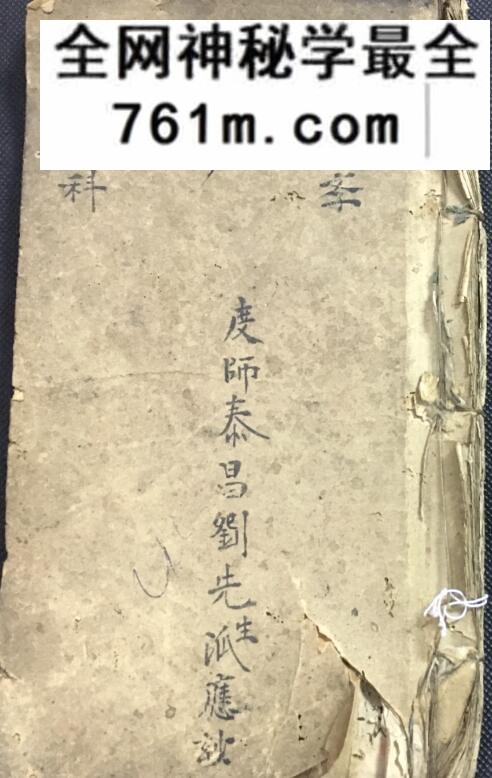 全网神秘学最全
761m.com
科
度師泰昌劉先生派應